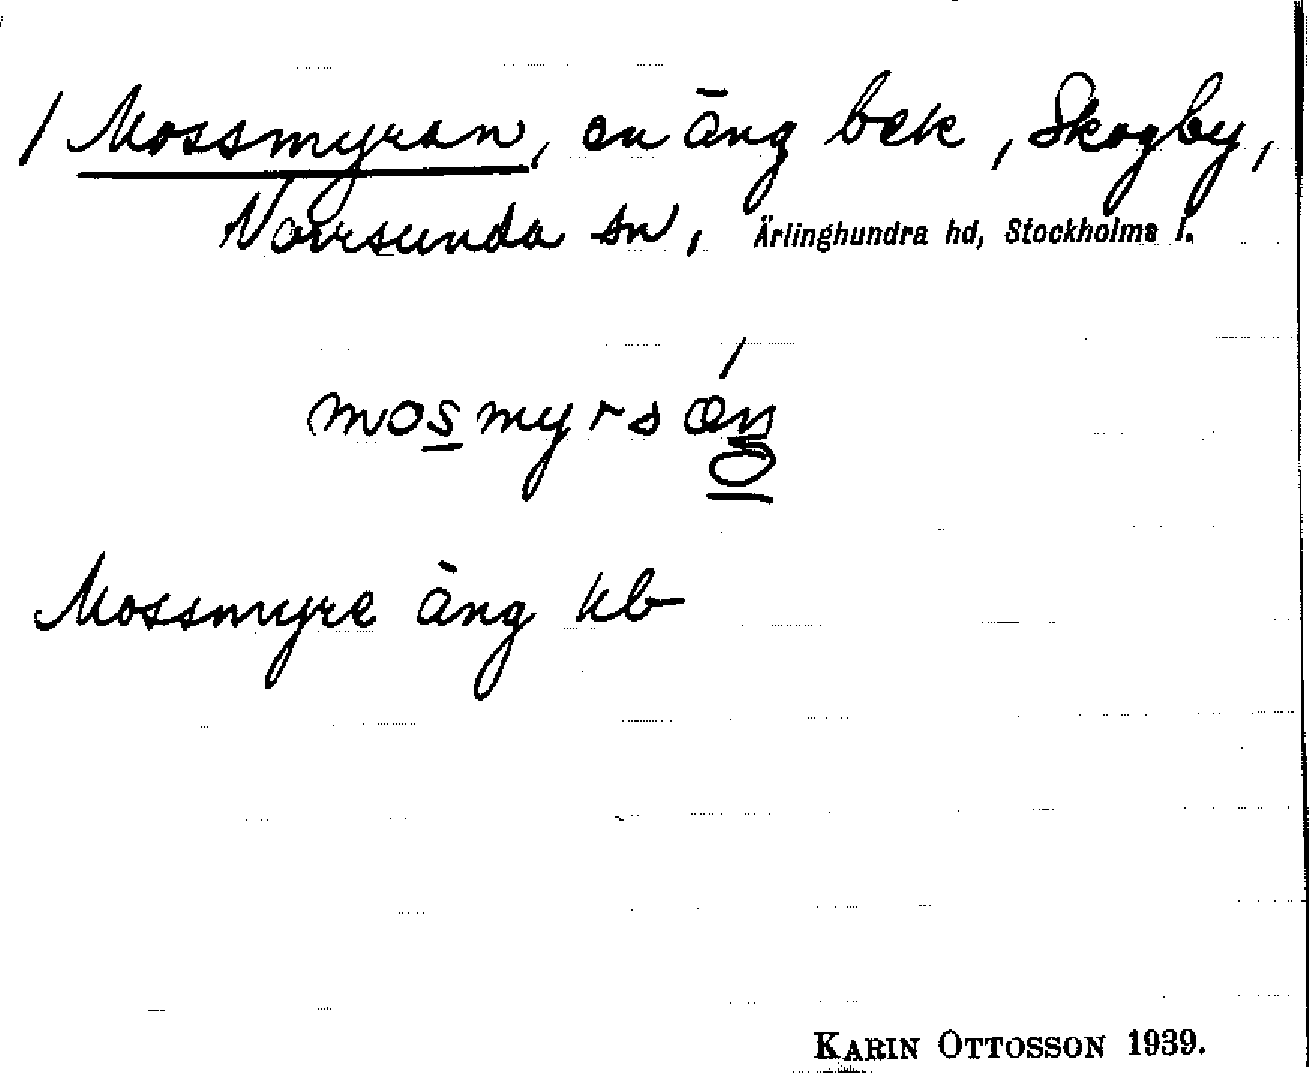 / Mossmyran, en äng bek, Skogby,
Norrsunda sn, Ärlinghundra hd, Stockholms l.
Mossmyre äng kb
KARIN OTTOSSON 1939.